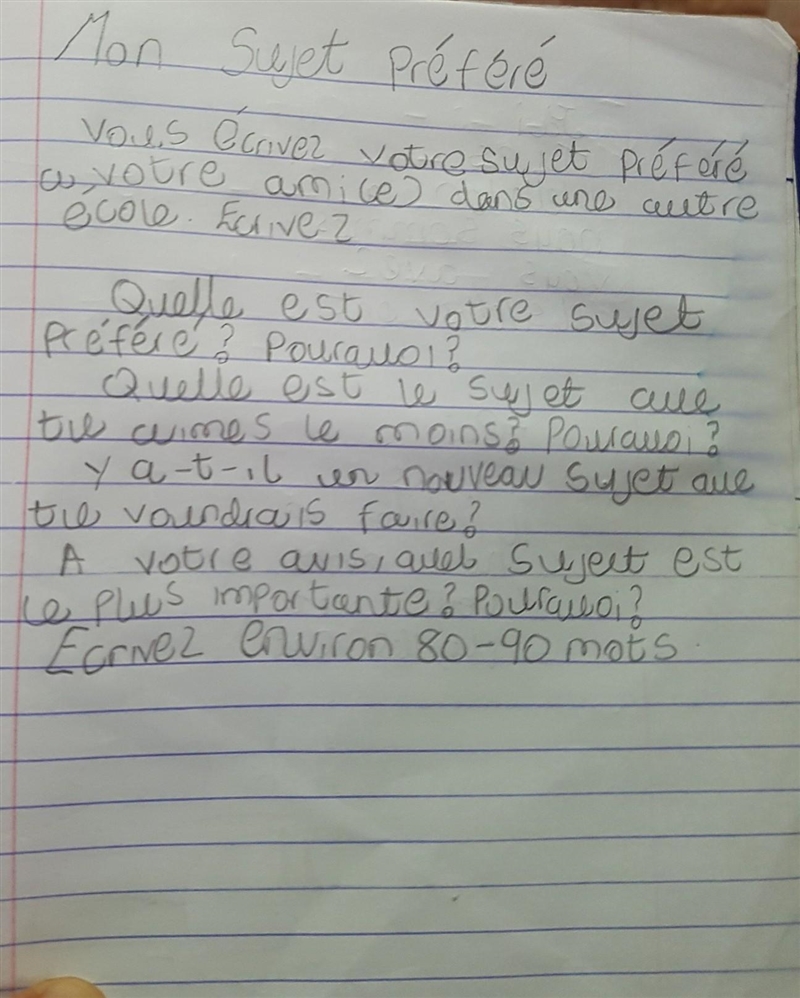 Mon Sujet Préféré
Vous écrivez votre sujet préféré
a votre ami(e) dans une autre
école. Ecrivez
Quelle est votre sujet
préféré? Pourquoi?
Quelle est le sujet que
tu aimes le moins? Pourquoi?
Y a-t-il un nouveau sujet que
tu voundrais faire?
A votre avis, quel sujet est
le plus importante? Pourquoi?
Ecrivez environ 80-90 mots.